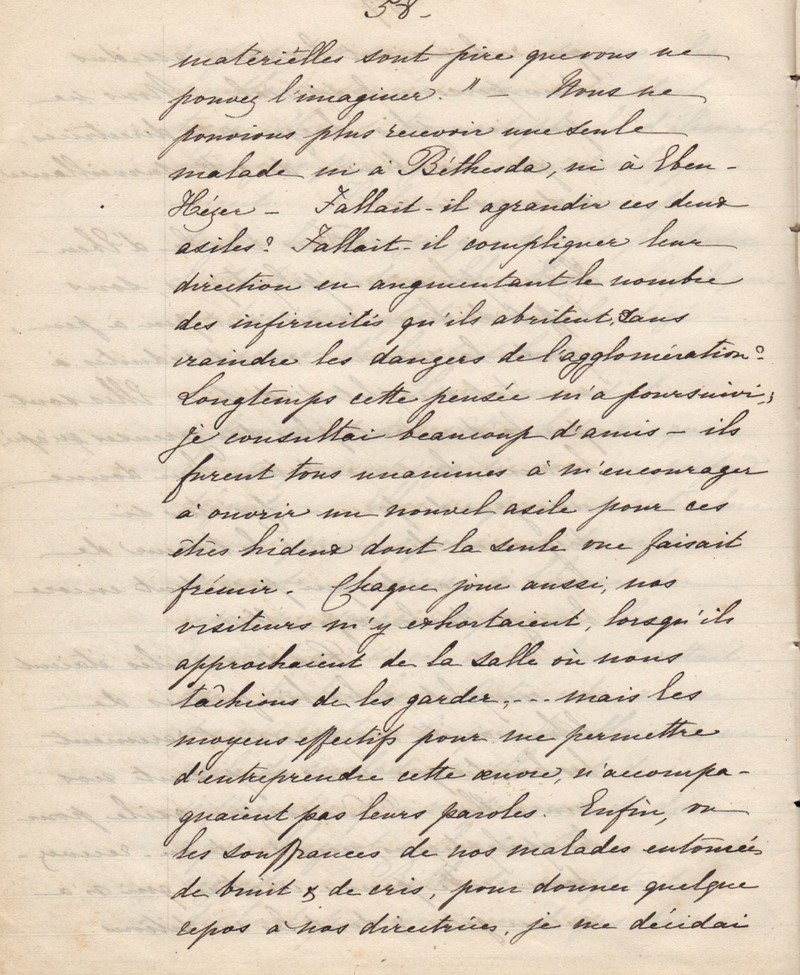 58.
matérièlles sont pire que vous ne
pouvez l'imaginer." – Nous ne
pouvions plus recevoir une seule
malade ni à Béthesda, ni à Eben-
Hézer – Fallait-il agrandir ces deux
asiles? Fallait-il compliquer leur
direction en augmentant le nombre
des infirmités qu'ils abritent, sans
craindre les dangers de l'agglomération?
Longtemps cette pensée m'a poursuivi;
je consultai beaucoup d'amis – ils
furent tous unanimes à m'encourager
à ouvrir un nouvel asile pour ces
êtres hideux dont la seule vue faisait
frémir. Chaque jour aussi, nos
visiteurs m'y exhortaient, lorsqu'ils
approchaient de la salle où nous
tâchions de les garder,... mais les
moyens effectifs pour me permettre
d'entreprendre cette œuvre, n'accompa-
gnaient pas leurs paroles. Enfin, vu
les souffrances de nos malades entourées
de bruit & de cris, pour donner quelque
repos à nos directrices, je me décidai